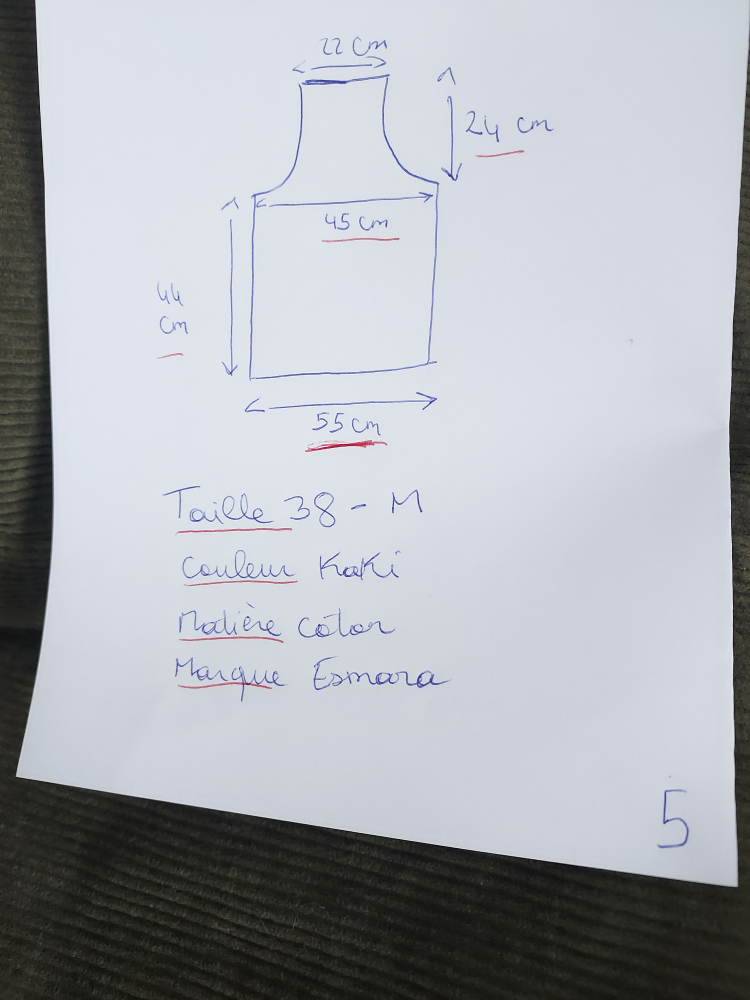 22 cm
24 cm
45 cm
44
cm
55 cm
Taille 38 - M
Couleur KaKi
Matière coton
Marque Esmara
5